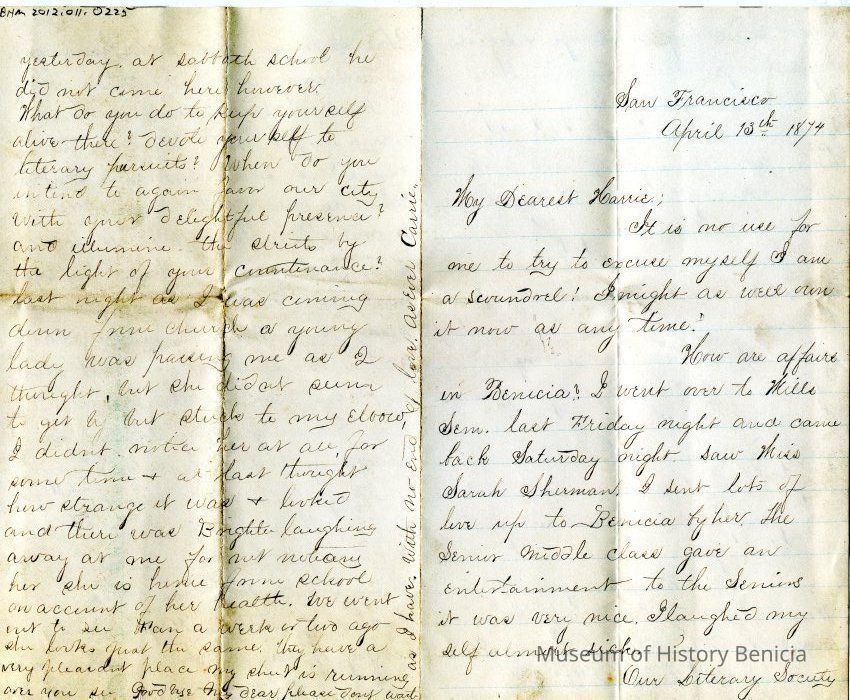 BHM 2012.011.0225
San Francisco
April 13th 1874
My Dearest Harrie;
It is no use for
me to try to excuse myself I am
a scoundrel! I might as well own
it now as any time!
How are affairs
in Benicia? I went over to Mills
Sem. last Friday night and came
back Saturday night saw Miss
Sarah Sherman. I sent lots of
love up to Benicia by her The
Senior Middle class gave an
entertainment to the Seniors
it was very nice. I laughed my
self almost sick.
Our Literary Society
yesterday. at sabbath school he
did not come here however.
What do you do to keep yourself
alive there? devote yourself to
literary pursuits? When do you
intend to again favor our city
with your delightful presence?
and illumine the streets by
the light of your countenance?
last night as I was coming
down from church a young
lady was passing me as I
thought, but she didnt seem
to get by but stuck to my elbow,
I didnt notice her at all, for
some time & at last thought
how strange it was & looked
and there was Brighte laughing
away at me for not noticing
her she is home from school
on account of her health. We went
out to see a week or two ago
she looks just the same. They have a
very pleasant place my sheet is running
over you see Good bye My dear please don't wait
as I have. With no end of love. As ever Carrie.
Museum of History Benicia